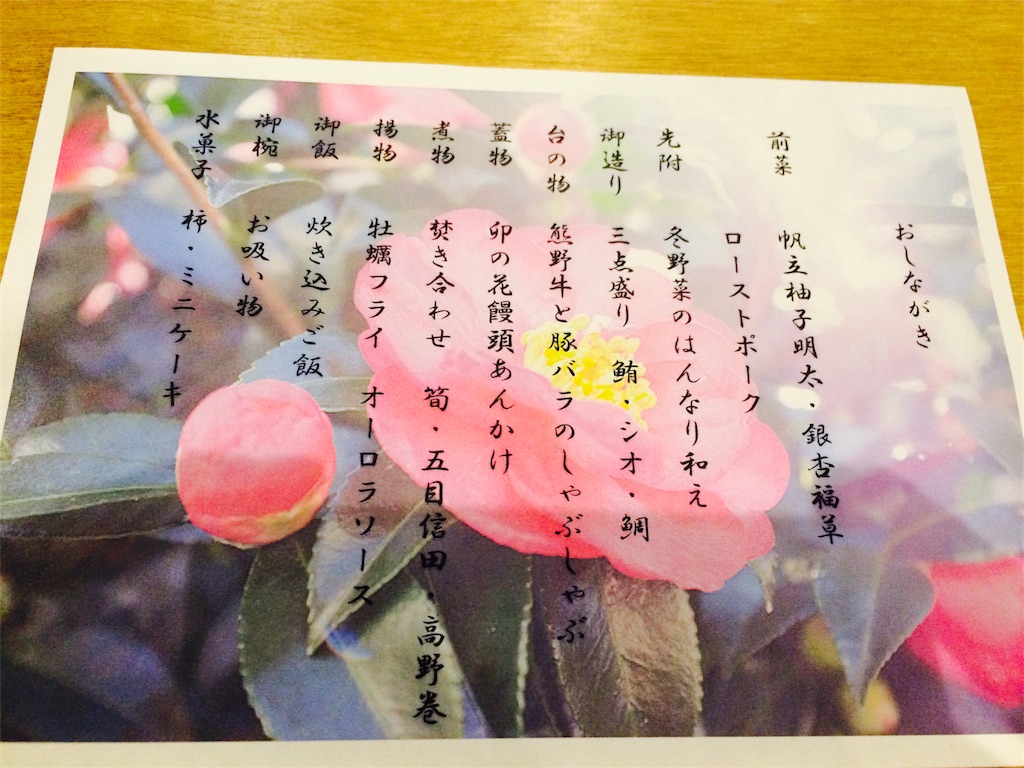 おしながき
前菜　帆立柚子明太・銀杏福草
ローストポーク
先附　冬野菜のはんなり和え
御造り　三点盛り　鮪・シオ・鯛
台の物　熊野牛と豚バラのしゃぶしゃぶ
蓋物　卯の花饅頭あんかけ
煮物　焚き合わせ　筍・五目信田・高野巻
揚物　牡蠣フライ　オーロラソース
御飯　炊き込みご飯
御椀　お吸い物
水菓子　柿・ミニケーキ